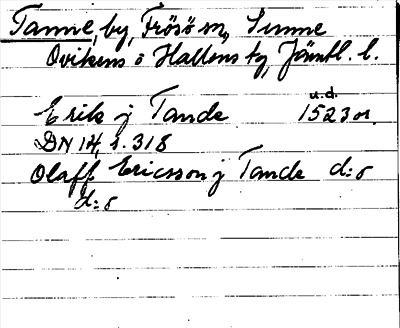 Tanne, by, Frösö sn, Sunne
Ovikens o Hallens tg, Jämtl. l.
Erik j Tande u.d. 1523 or.
DN 14, s. 318
Olaff Ericsson j Tande d:o
d:o